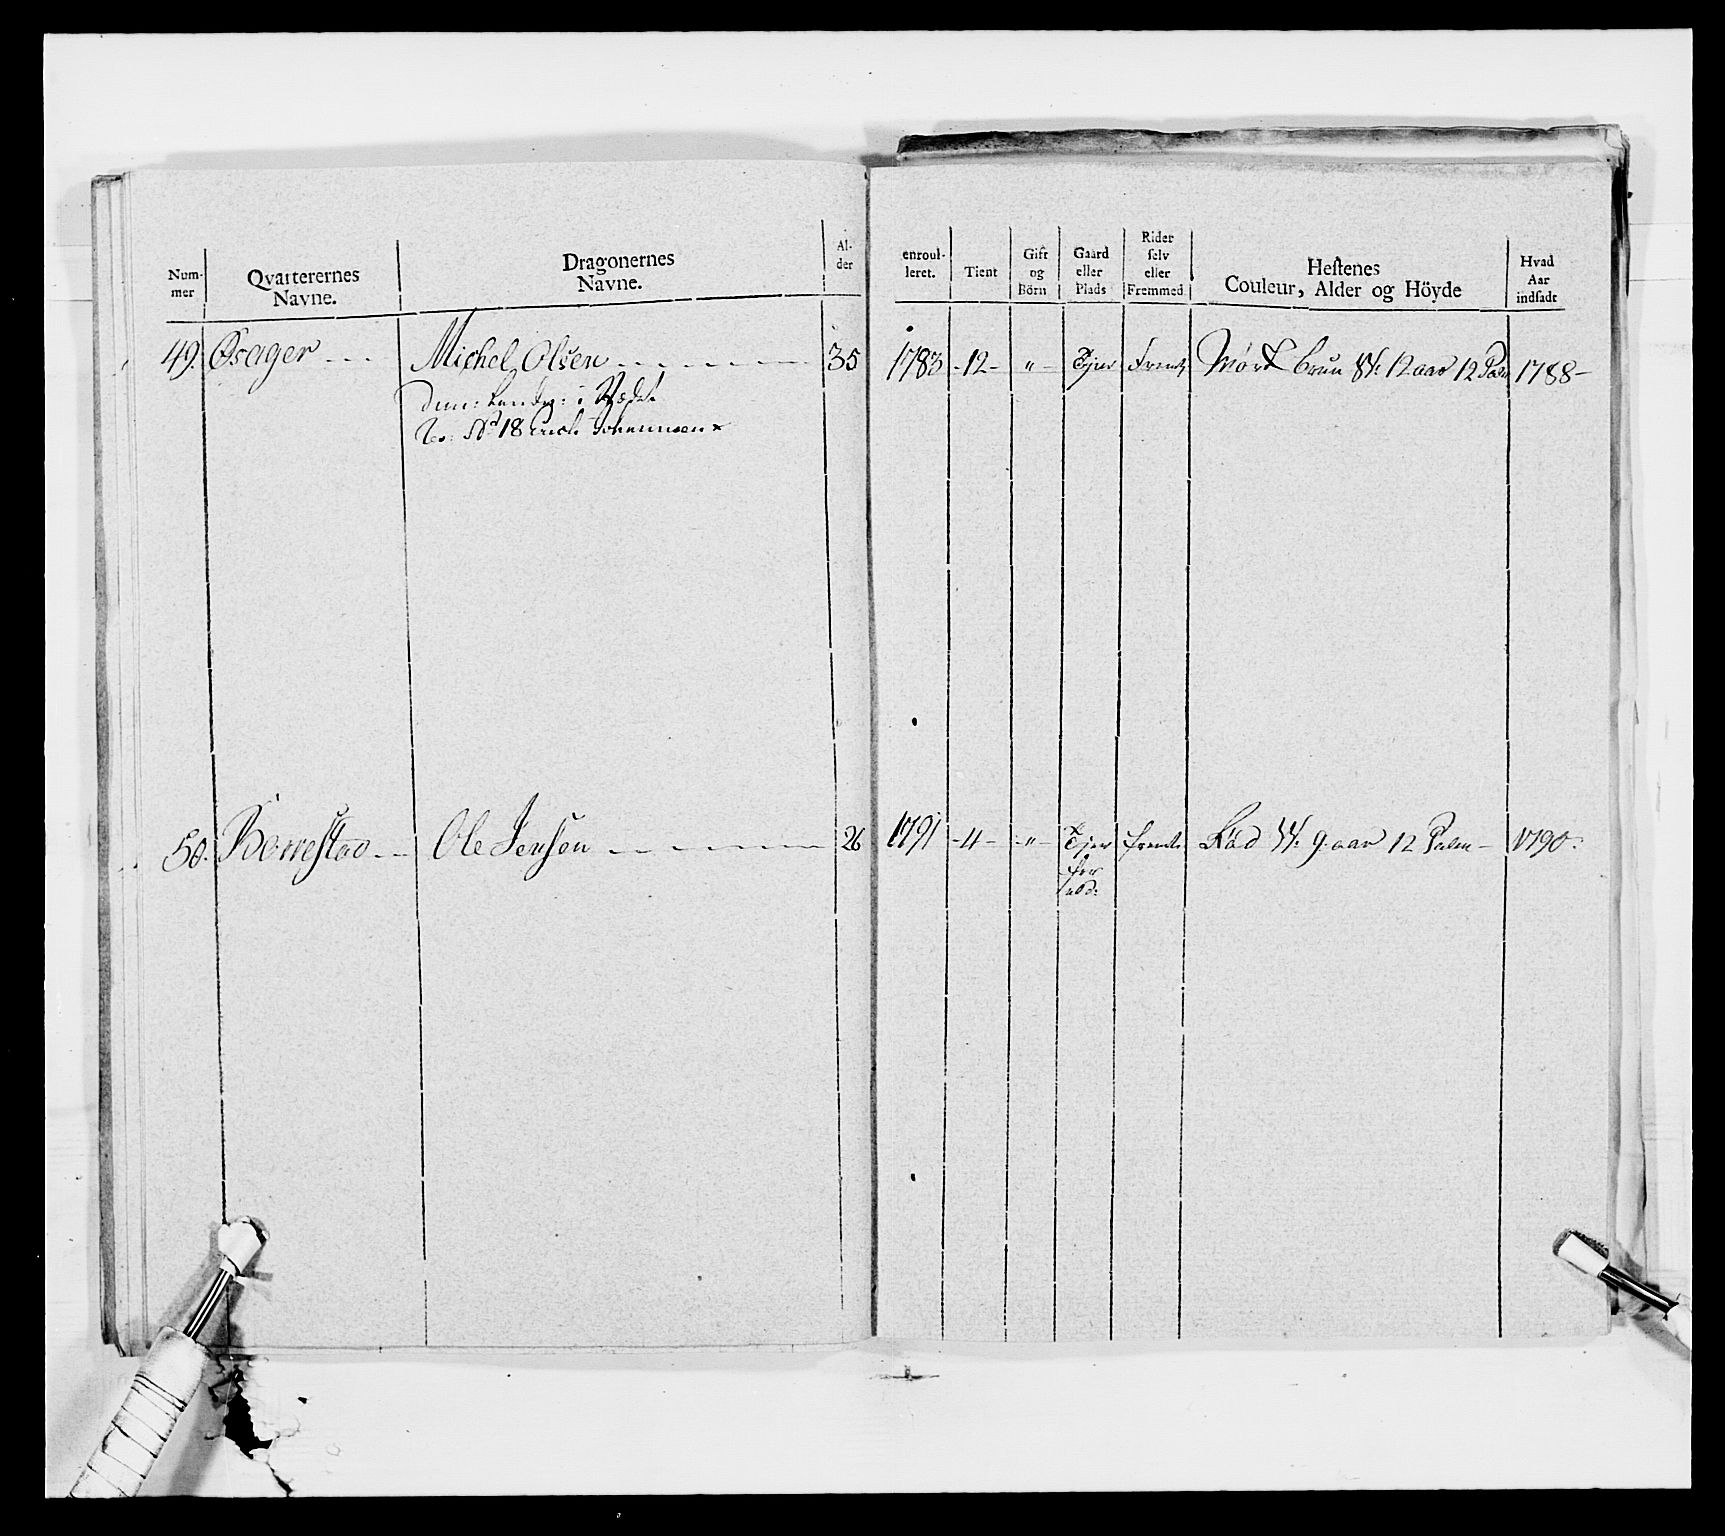 Num-
mer
Qvarterernes
Navne.
Dragonernes
Navne.
Al-
der
enroul-
leret.
Tient
Gift
og
Börn
Gaard
eller
Plads
Rider
selv
eller
Fremmed
Hestenes
Couleur, Alder og Höyde
Hvad
Aar
indsadt
49. Osager Michel Olsen 35 1783 -12- " Tjener Mørk bruun 12 aar 12 Palm 1788-
No 18
50. Borrestad Ole Jensen 26 1791 -4- " Tjener Rød 9 aar 12 Palm 1790: